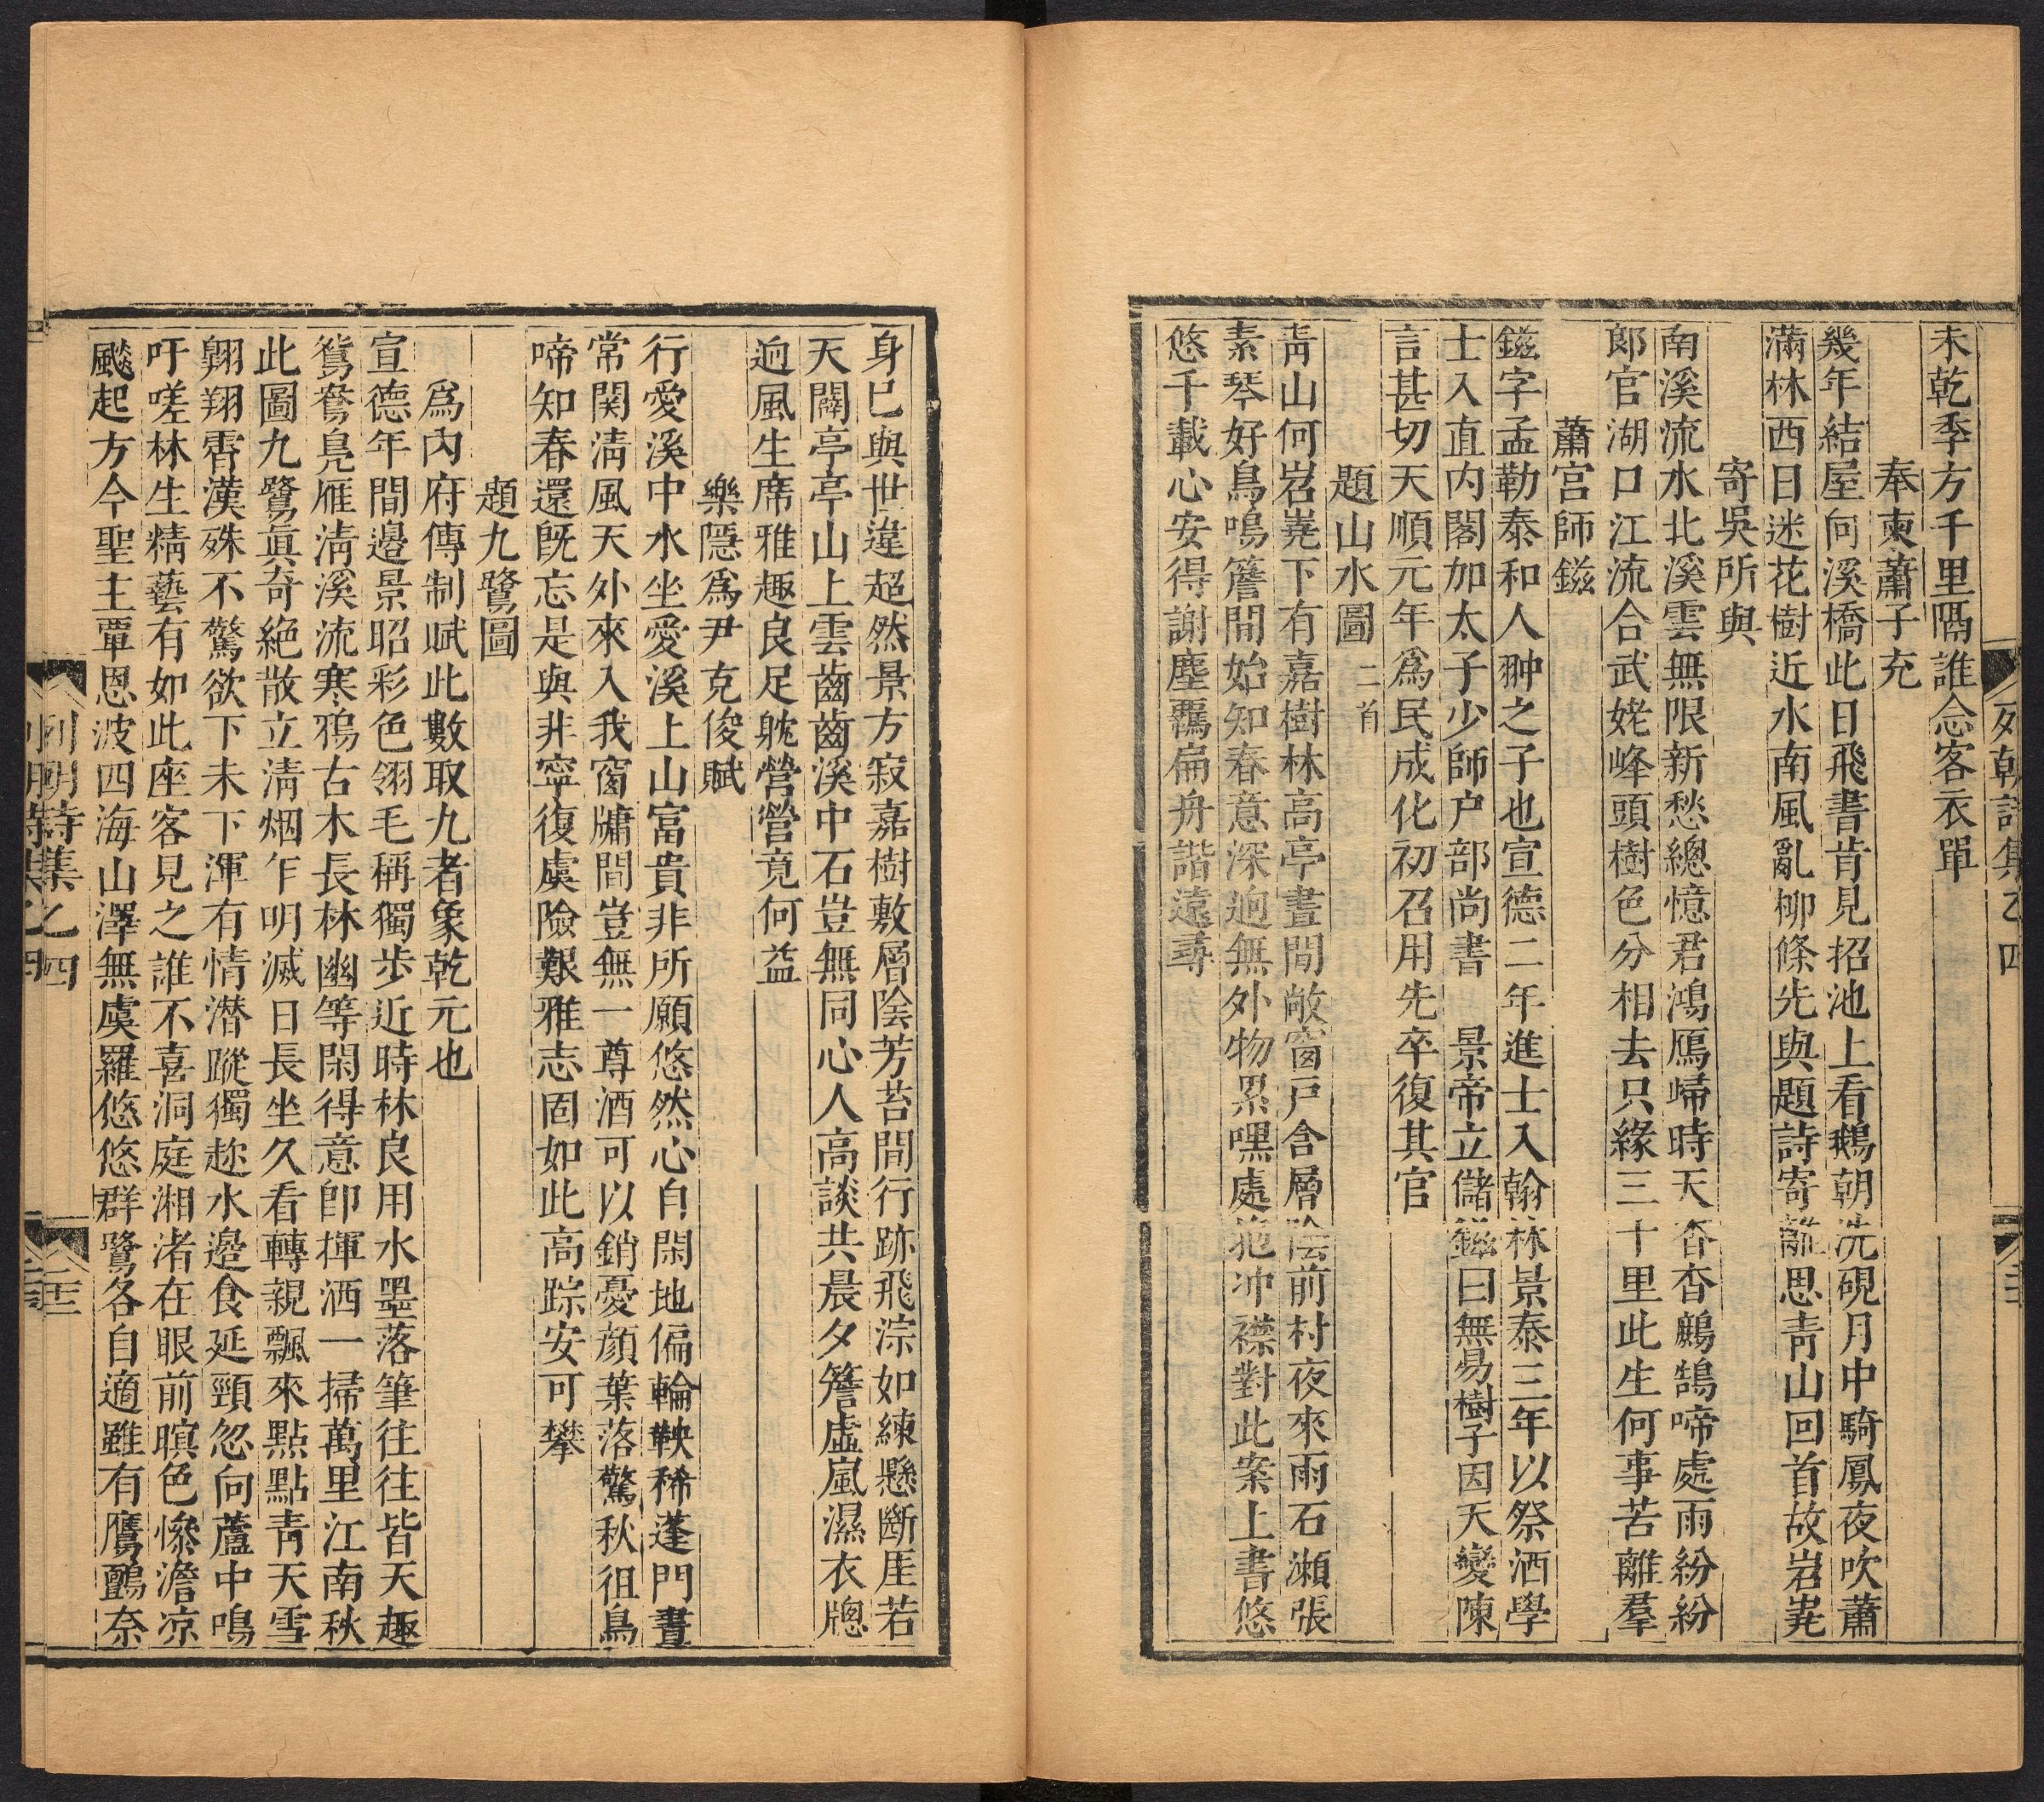 列朝詩集乙四
未乾季方千里隔誰念客衣單
奉柬蕭子充
幾年結屋向溪橋此日飛書肯見招池上看鵝朝洗硯月中騎鳳夜吹蕭
滿林西日迷花樹近水南風亂柳條先與題詩寄離思青山回首故岧嶤
寄吳所與
南溪流水北溪雲無限新愁總憶君鴻鴈歸時天杳杳鷓鴣啼處雨紛紛
郎官湖口江流合武姥峰頭樹色分相去只緣三十里此生何事苦離羣
蕭宮師鎡
鎡字孟勒泰和人翀之子也宣德二年進士入翰林景泰三年以祭酒學
士入直內閣加太子少師户部尚書 景帝立儲鎡曰無易樹子因天變陳
言甚切天順元年爲民成化初召用先卒復其官
題山水圖 二首
靑山何岧嶤下有嘉樹林高亭晝間敞窗戸含層陰前村夜來雨石瀨張
素琴好鳥鳴簷間始知春意深逈無外物累嘿處抱冲襟對此案上書悠
悠千載心安得謝塵羈扁舟諧遠尋
身巳與世違超然景方寂嘉樹敷層陰芳苔間行跡飛淙如練懸斷厓若
天闢亭亭山上雲齒齒溪中石豈無同心人高談共晨夕簷虛嵐濕衣牕
逈風生席雅趣良足躭營營竟何益
樂隱爲尹克俊賦
行愛溪中水坐愛溪上山富貴非所願悠然心自閑地偏輪鞅稀蓬門晝
常関淸風天外來入我窗牗間豈無一尊酒可以銷憂顔葉落驚秋徂鳥
啼知春還旣忘是與非寧復虞險艱雅志固如此高踪安可攀
題九鷺圖
爲內府傳制賦此數取九者象乾元也
宣德年間邊景昭彩色翎毛稱獨步近時林良用水墨落筆往往皆天趣
鴛鴦鳧雁淸溪流寒鴉古木長林幽等閑得意卽揮洒一掃萬里江南秋
此圖九鷺眞奇絶散立淸烟乍明滅日長坐久看轉親飄來點點靑天雪
翺翔霄漢殊不驚欲下未下渾有情潜蹤獨趂水邉食延頸忽向蘆中鳴
吁嗟林生精藝有如此座客見之誰不喜洞庭湘渚在眼前暝色慘澹凉
飈起方今聖主覃恩波四海山澤無虞羅悠悠群鷺各自適雖有鷹鸇奈
列朝詩集乙四 二十二